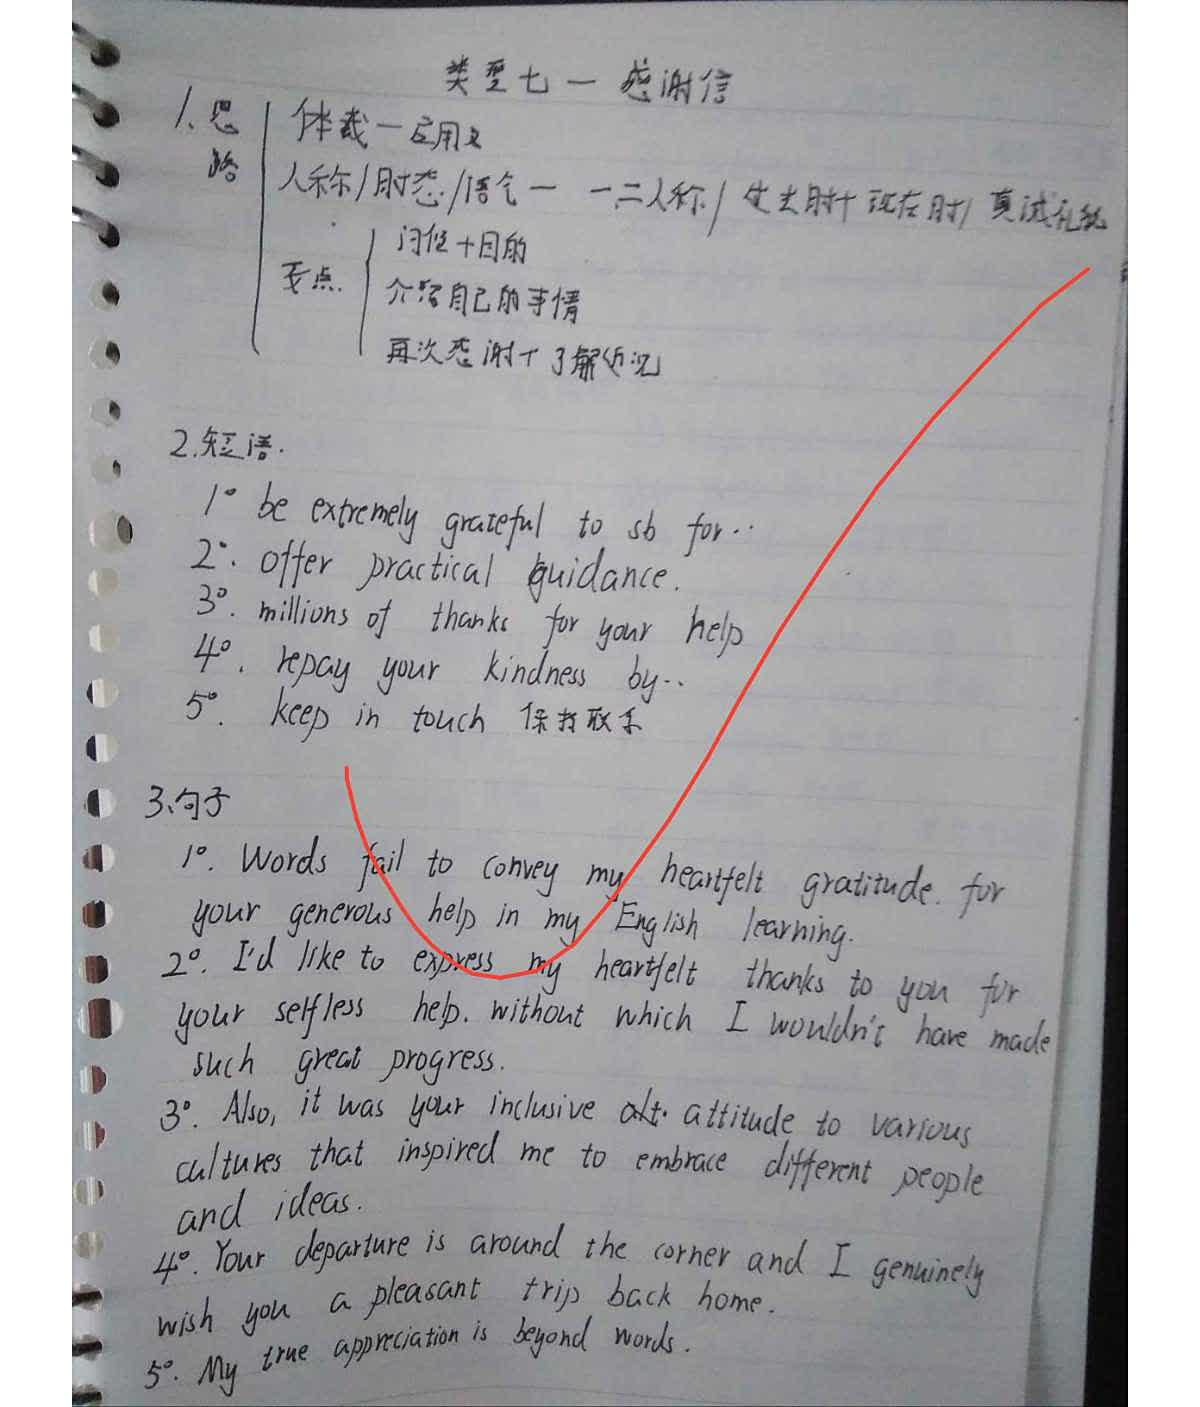 类型七一感谢信
1、思路
体裁一应用文
人称/时态/语气一 一二人称/过去时+现在时/真诚礼貌
要点.
问候+目的
介绍自己的事情
再次感谢+了解近况
2.短语.
1° be extremely grateful to sb for..
2°. offer practical guidance.
3°. millions of thanks for your help
4°. repay your kindness by..
5°. keep in touch 保持联系
3、句子
1°. Words fail to convey my heartfelt gratitude. for
your generous help in my English learning.
2°. I'd like to express my heartfelt thanks to you for
your selfless help. without which I wouldn't have made
such great progress.
3°. Also, it was your inclusive attitude to various
cultures that inspired me to embrace different people
and ideas.
4°. Your departure is around the corner and I genuinely
wish you a pleasant trip back home.
5°. My true appreciation is beyond words.